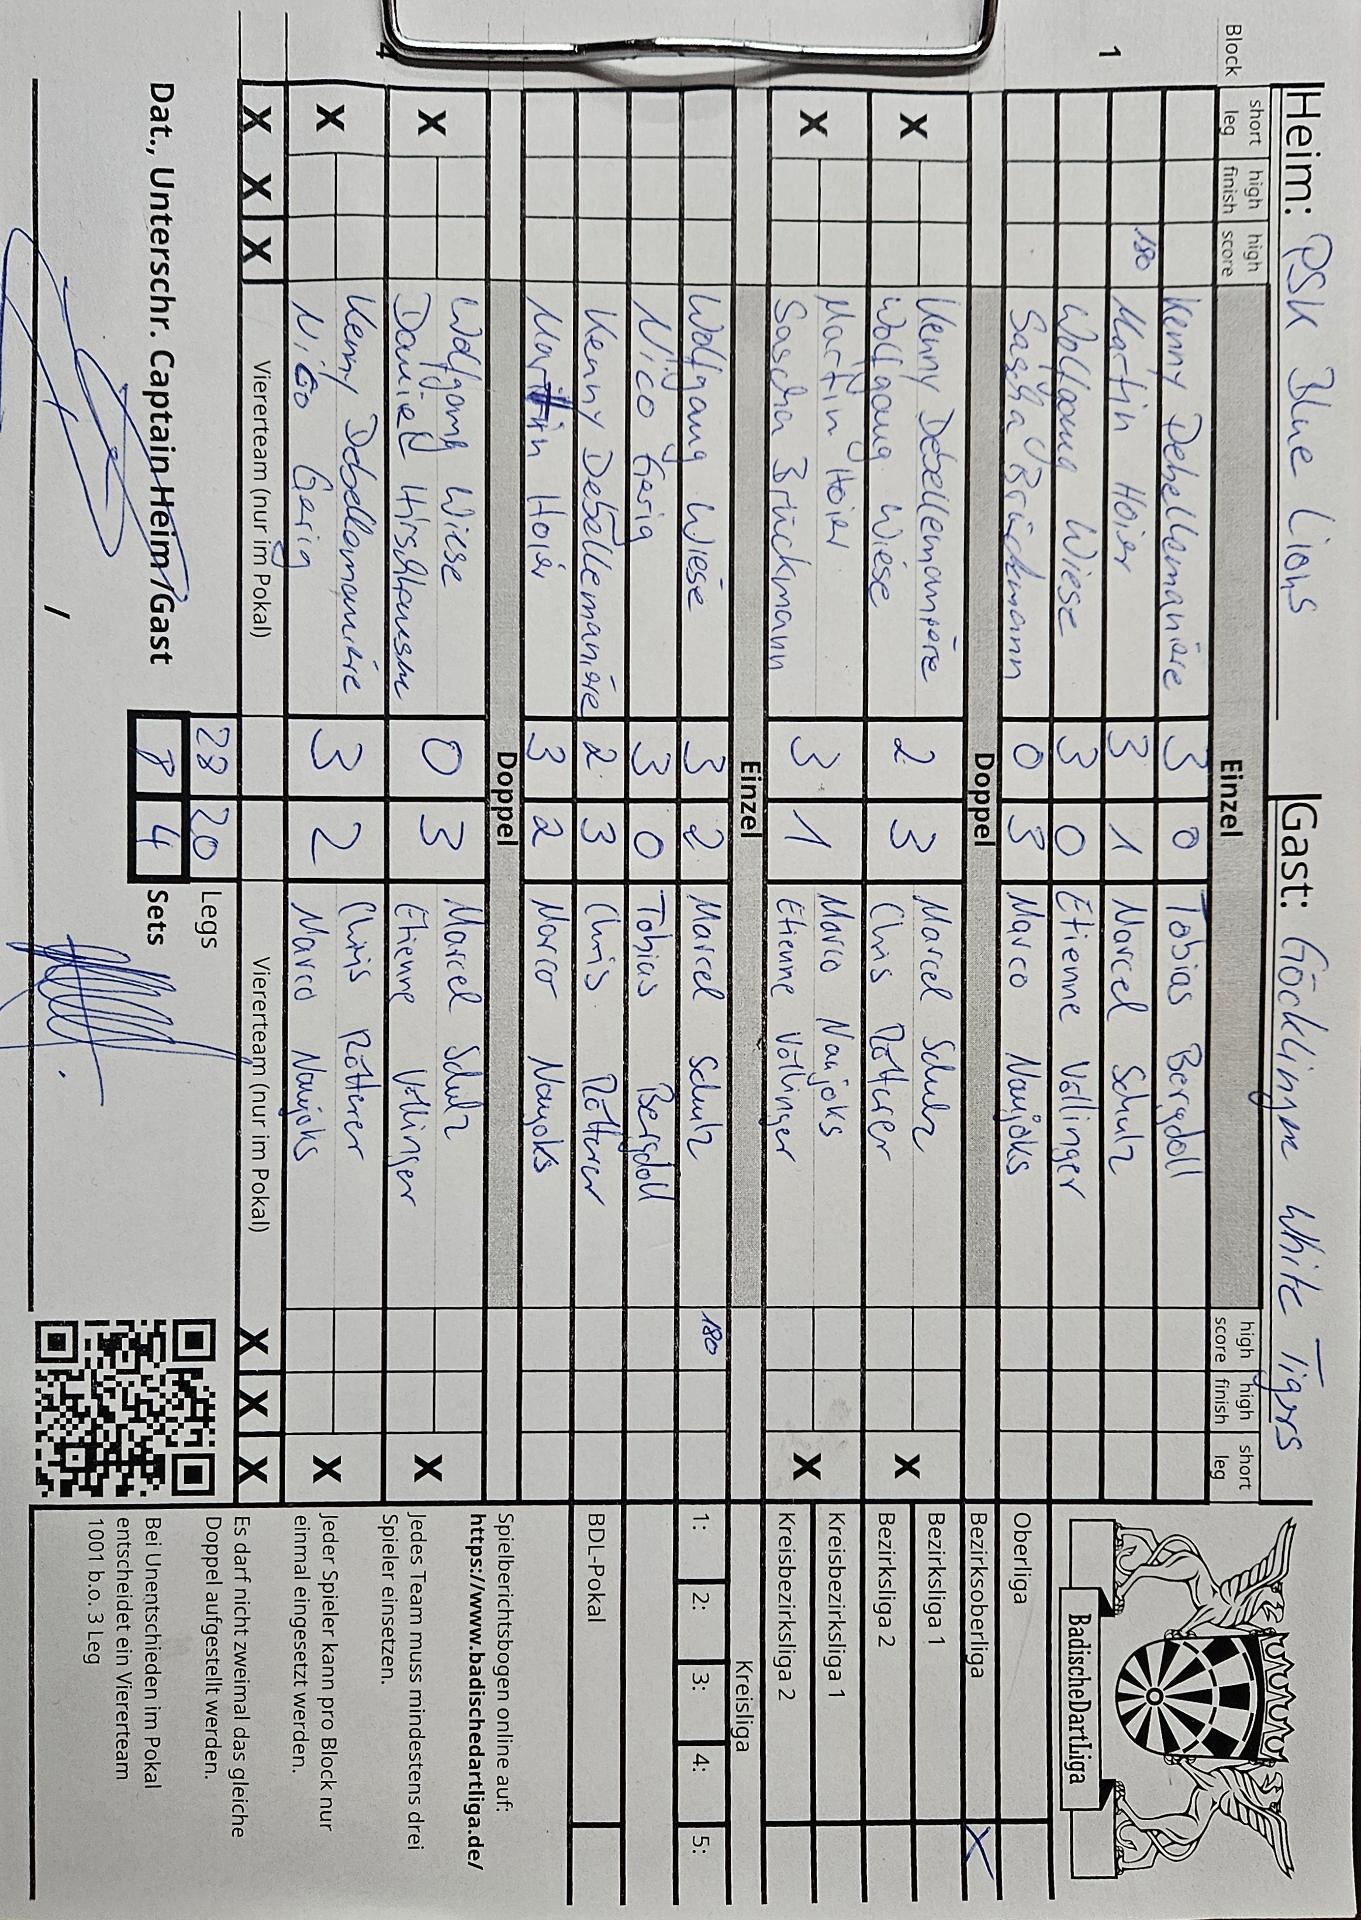 Heim: PSK Blue Lions Gast: Göcklingen White Tigers
Block short leg high finish high score Einzel high score high finish short leg
Kenny Debellemanière 3 0 Tobias Bergdoll
1 180 Martin Hoier 3 1 Marcel Schulz
Wolfgang Wiese 3 0 Etienne Vollinger
Sascha Brückmann 0 3 Marco Naujoks
Doppel
X Kenny Debellemanière 2 3 Marcel Schulz X
Wolfgang Wiese Chris Rotterer
X Martin Hoier 3 1 Marco Naujoks X
Sascha Brückmann Etienne Vollinger
Einzel
Wolfgang Wiese 3 2 Marcel Schulz 180
Nico Gerig 3 0 Tobias Bergdoll
Kenny Debellemanière 2 3 Chris Rotterer
Martin Hoier 3 2 Marco Naujoks
Doppel
4 X Wolfgang Wiese 0 3 Marcel Schulz X
Daniel Etienne Vollinger
X Kenny Debellemanière 3 2 Chris Rotterer X
Nico Gerig Marco Naujoks
X X X Viererteam (nur im Pokal) Viererteam (nur im Pokal) X X X
28 20 Legs
Dat., Unterschr. Captain Heim/Gast 8 4 Sets
/
BadischeDartLiga
Oberliga
Bezirksoberliga X
Bezirksliga 1
Bezirksliga 2
Kreisbezirksliga 1
Kreisbezirksliga 2
Kreisliga
1: 2: 3: 4: 5:
BDL-Pokal
Spielberichtsbogen online auf:
https://www.badischedartliga.de/
Jedes Team muss mindestens drei
Spieler einsetzen.
Jeder Spieler kann pro Block nur
einmal eingesetzt werden.
Es darf nicht zweimal das gleiche
Doppel aufgestellt werden.
Bei Unentschieden im Pokal
entscheidet ein Viererteam
1001 b.o. 3 Leg